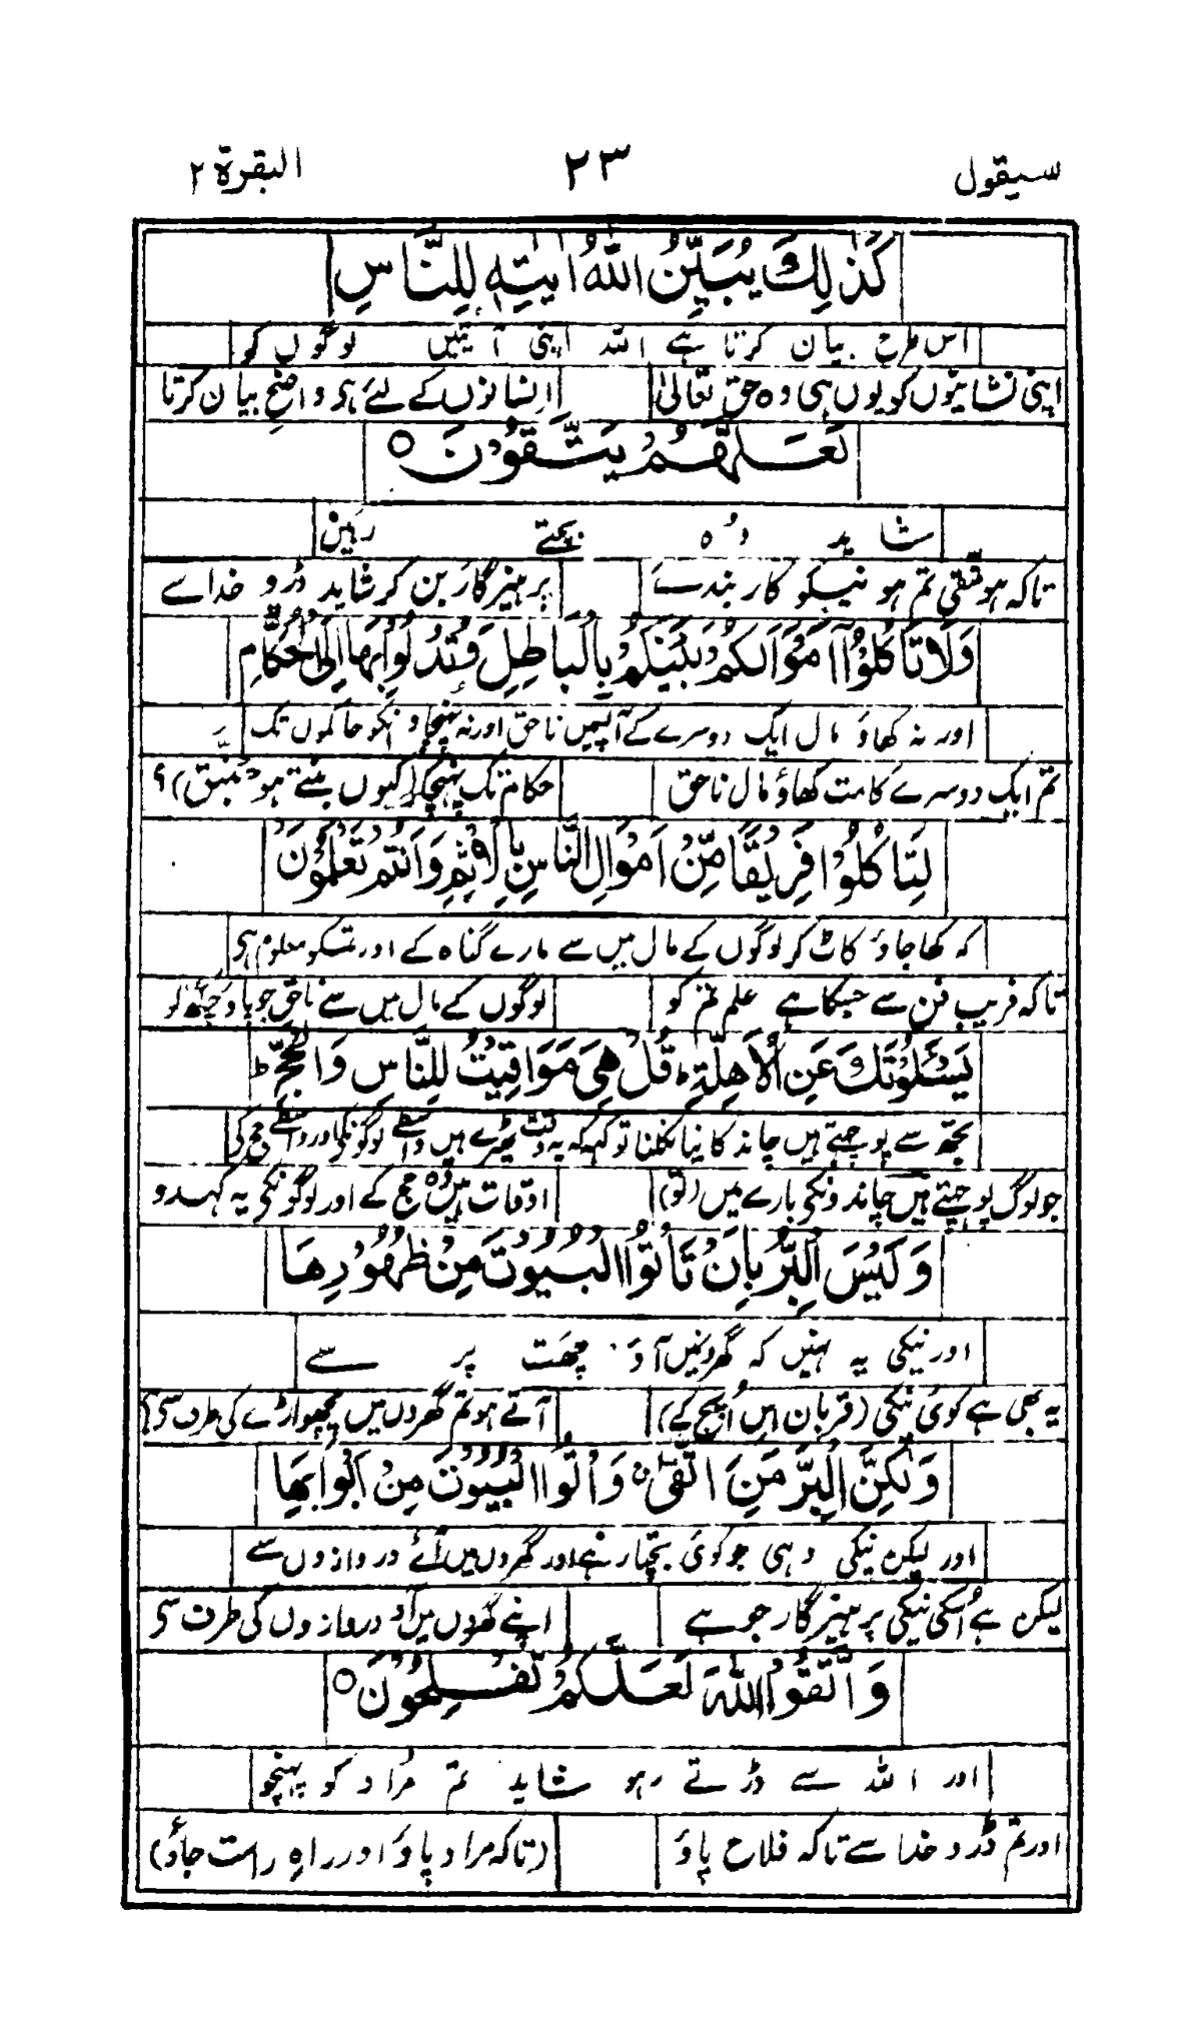 سیقول ۲۳ البقرة ۲
كَذٰلِكَ يُبَيِّنُ اللّٰهُ اٰيٰتِهٖ لِلنَّاسِ
اس طرح بیان کرتا ہے اللہ اپنی آیتیں لوگوں کو
اپنی نشانیوں کو یوں ہی وہ حق تعالیٰ انسانوں کے لئے ہی واضح بیان کرتا
لَعَلَّهُمْ يَتَّقُوْنَ ○
شاید وُہ بچتے رہیں
تاکہ ہو متقی تم ہو نیکو کار بندے پرہیزگار بن کر شاید ڈرو خدا سے
وَلَا تَاْكُلُوْٓا اَمْوَالَكُمْ بَيْنَكُمْ بِالْبَاطِلِ وَتُدْلُوْا بِهَا اِلَى الْحُكَّامِ
اور نہ کھاؤ مال ایک دوسرے کے آپسمیں ناحق اور نہ پہنچاو انکو حاکموں تک
تم ایک دوسرے کا مت کھاؤ مال ناحق حکام تک پہنچکر (کیوں بنتے ہو ) ؟
لِتَاْكُلُوْا فَرِيْقًا مِّنْ اَمْوَالِ النَّاسِ بِالْاِثْمِ وَاَنْتُمْ تَعْلَمُوْنَ
کہ کھا جاؤ کاٹ کر لوگوں کے مال میں سے مارے گناہ کے اور تمکو معلوم ہی
تاکہ فریب فن سے جسکا ہے علم تم کو لوگوں کے مال میں سے ناحق جو پاؤ
يَسْـَٔلُوْنَكَ عَنِ الْاَهِلَّةِ ؕ قُلْ هِيَ مَوَاقِيْتُ لِلنَّاسِ وَالْحَجِّ ؕ
تجھ سے پوچھتے ہیں چاند کا نیا نکلنا تو کہہ کہ یہ وقت ٹھیرے ہیں واسطے لوگونکے اور واسطے حج کے
جو لوگ پوچھتے ہیں چاندونکی بارے میں (تو) اوقات ہیں وہ حج کے اور لوگونکی یہ کہدو
وَلَيْسَ الْبِرُّ بِاَنْ تَاْتُوا الْبُيُوْتَ مِنْ ظُهُوْرِهَا
اور نیکی یہ نہیں کہ گھرونمیں آؤ چھت پر سے
یہ بھی ہے کوئی نیکی (قربان اس اُپج کے) آتے ہو تم گھروں میں پچھواڑے کی طرف سی؟
وَلٰكِنَّ الْبِرَّ مَنِ اتَّقٰى ۚ وَاْتُوا الْبُيُوْتَ مِنْ اَبْوَابِهَا
اور لیکن نیکی وہی جو کوئی بچتا رہے اور گھروں میں آئے دروازوں سے
لیکن ہے اُسکی نیکی پرہیزگار جو ہے اپنے گھروں میں آؤ دروازوں کی طرف سی
وَاتَّقُوا اللّٰهَ لَعَلَّكُمْ تُفْلِحُوْنَ ○
اور اللہ سے ڈرتے رہو شاید تم مُراد کو پہنچو
اور تم ڈرو خدا سے تاکہ فلاح پاؤ (تاکہ مراد پاؤ اور راہِ راست جاؤ)